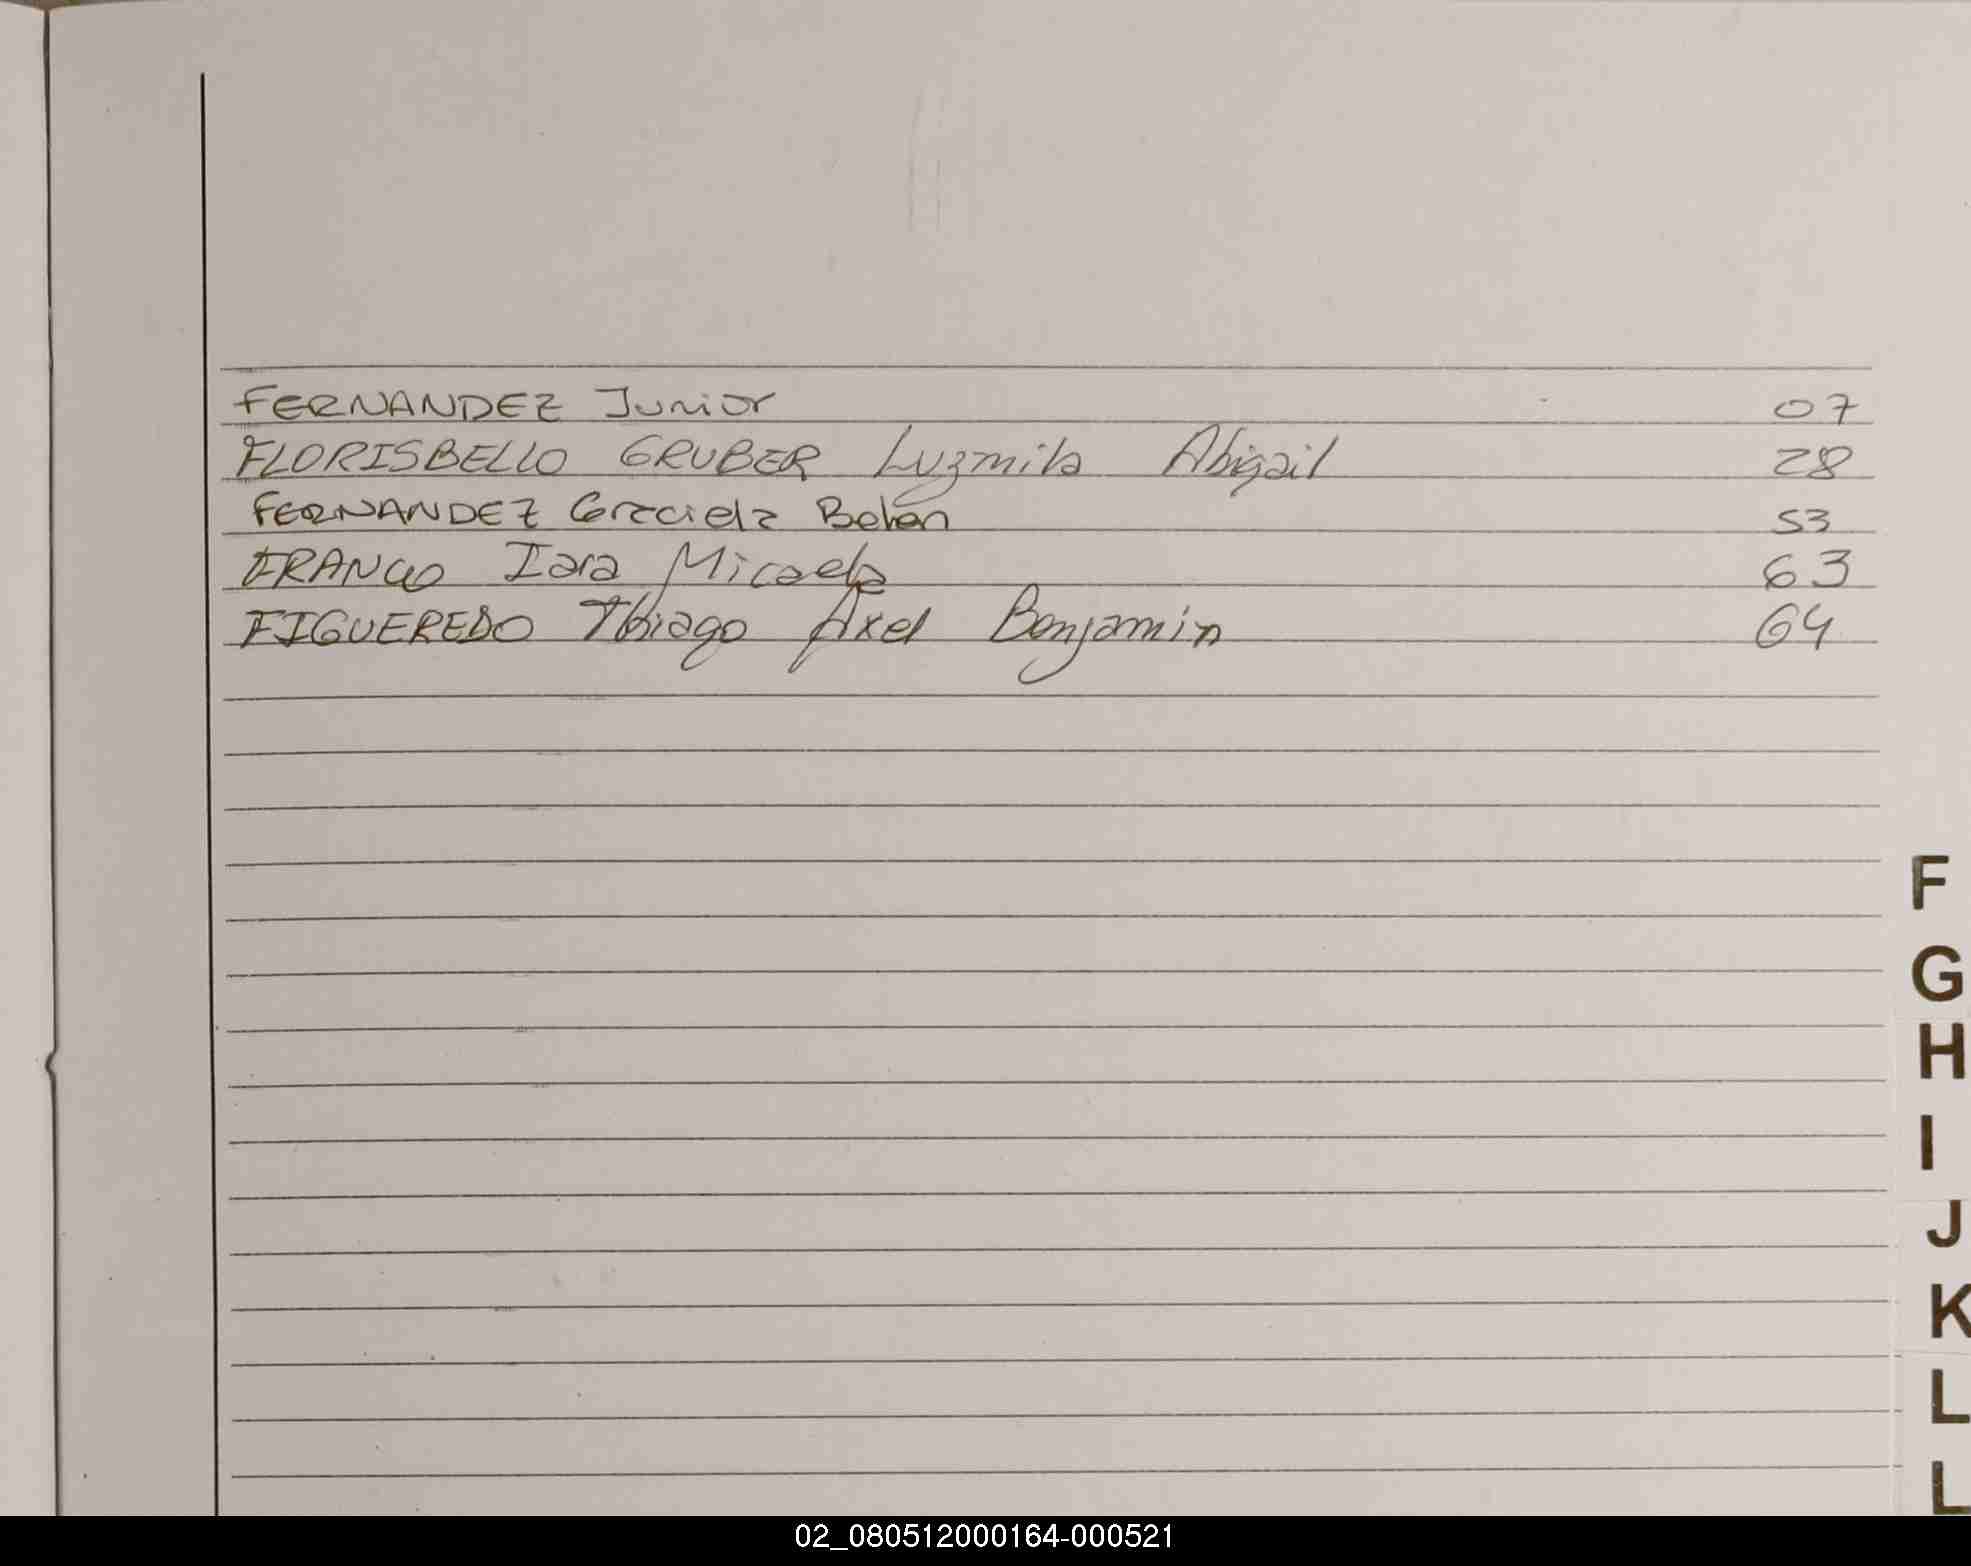 FERNANDEZ Junior 07
FLORISBELLO GRUBER Luzmila Abigail 28
FERNANDEZ Graciela Belén 53
FRANCO Iara Micaela 63
FIGUEREDO Thiago Axel Benjamin 64
F
G
H
I
J
K
L
L
02_080512000164-000521